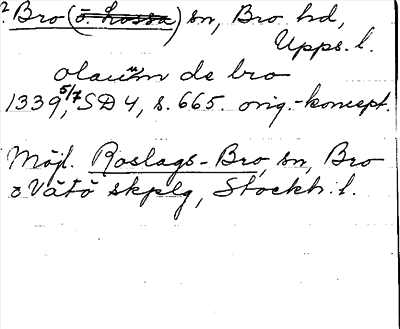 ? Bro (ö. Lossa) sn, Bro hd,
Upps. l.
olauum de bro
1339 5/7, SD 4, s. 665. orig.-koncept.
Möjl. Roslags-Bro, sn, Bro
o Vätö skplg, Stockh. l.